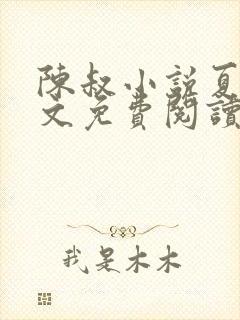 陳叔小說夏
文免費閱讀
我是木木